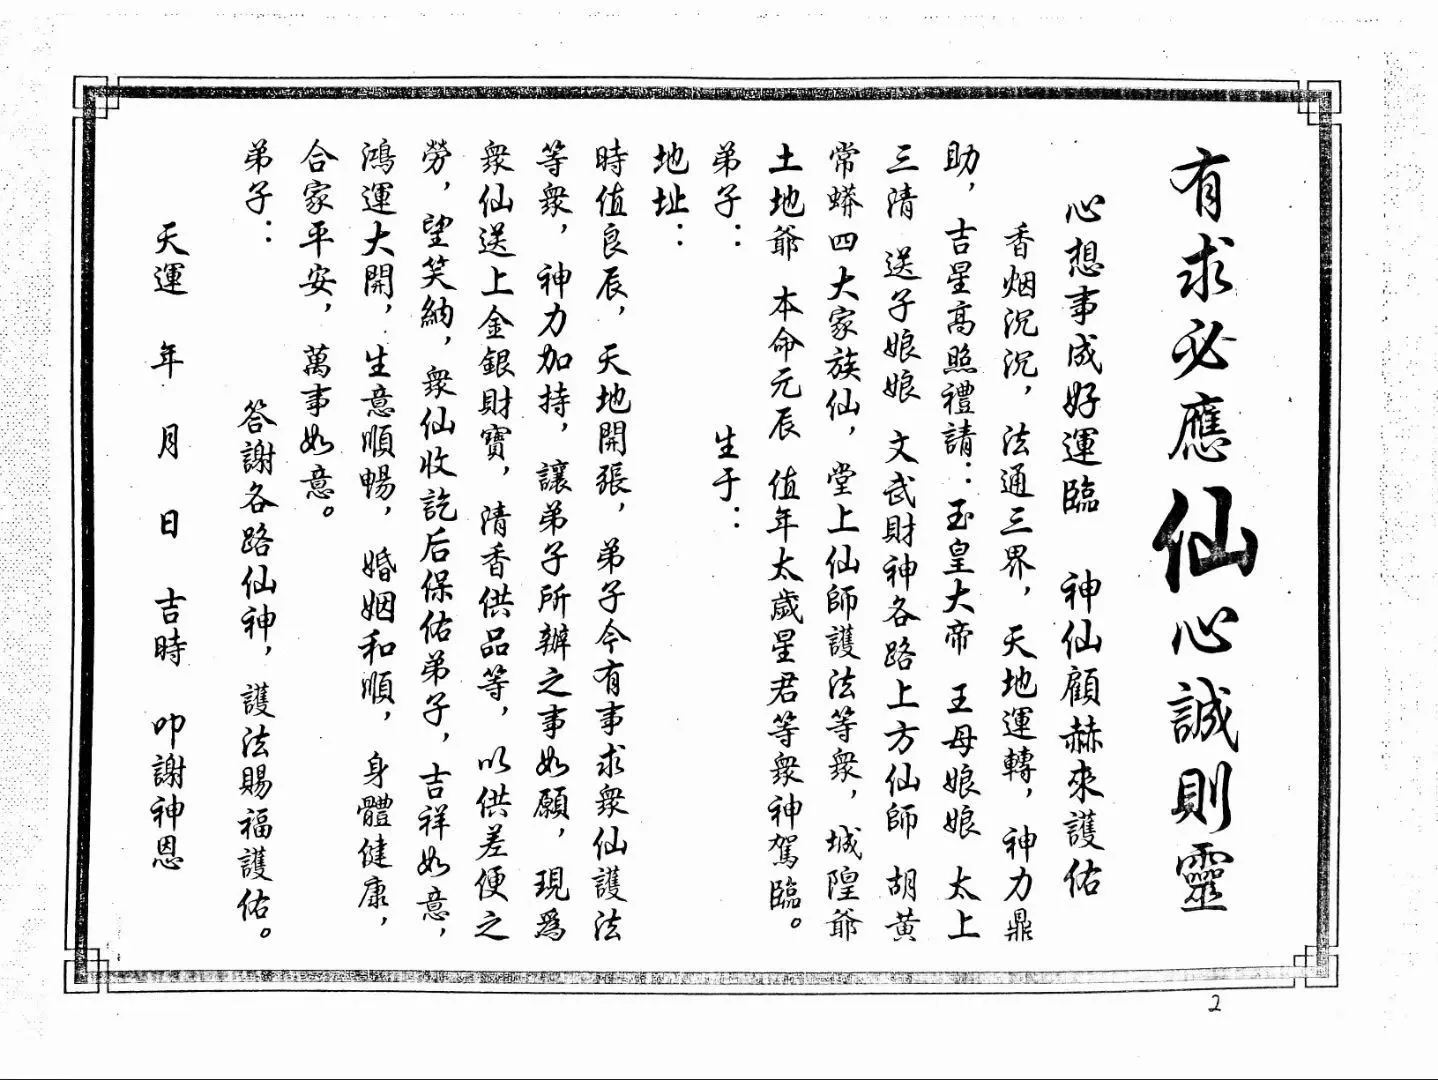 有求必應仙心誠則靈
心想事成好運臨 神仙顧赫來護佑
香烟沉沉，法通三界，天地運轉，神力鼎
助，吉星高照禮請：玉皇大帝 王母娘娘 太上
三清 送子娘娘 文武財神各路上方仙師 胡黃
常蟒四大家族仙，堂上仙師護法等衆，城隍爺
土地爺 本命元辰 值年太歲星君等衆神駕臨。
弟子： 生于：
地址：
時值良辰，天地開張，弟子今有事求衆仙護法
等衆，神力加持，讓弟子所辦之事如願，現爲
衆仙送上金銀財寶，清香供品等，以供差便之
勞，望笑納，衆仙收訖后保佑弟子，吉祥如意，
鴻運大開，生意順暢，婚姻和順，身體健康，
合家平安，萬事如意。
弟子： 答謝各路仙神，護法賜福護佑。
天運 年 月 日 吉時 叩謝神恩
2